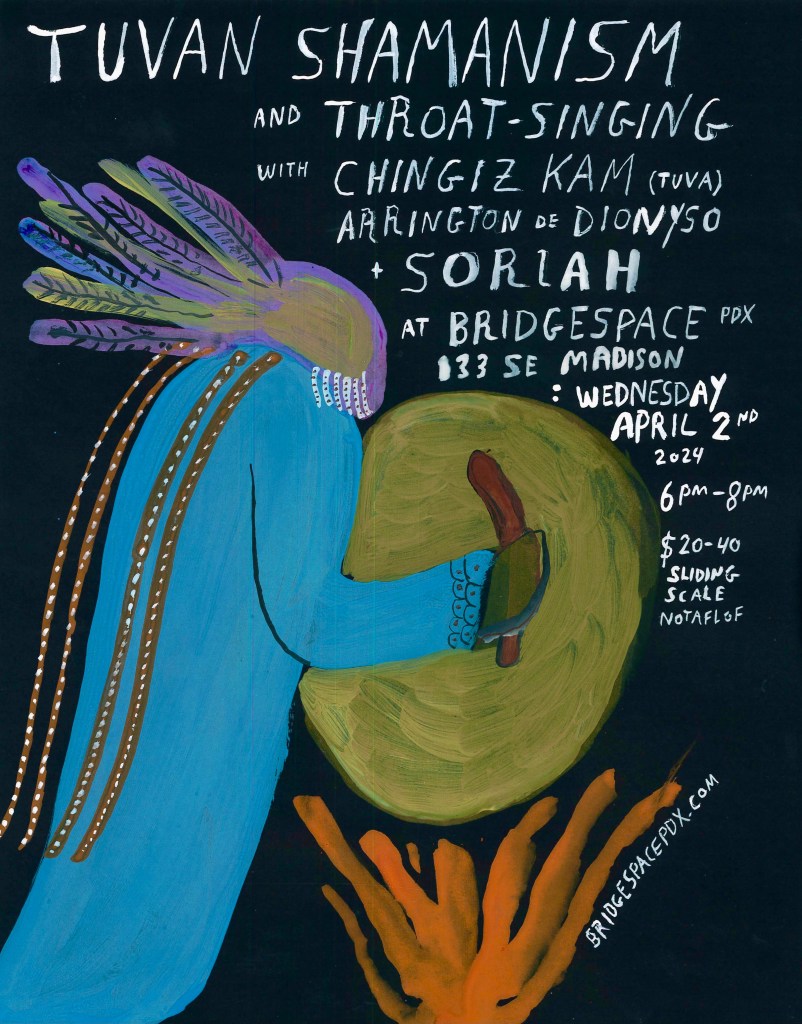 TUVAN SHAMANISM
AND THROAT-SINGING
WITH CHINGIZ KAM (TUVA)
ARRINGTON DE DIONYSO
+ SORIAH
AT BRIDGESPACE PDX
133 SE MADISON
: WEDNESDAY
APRIL 2ND
2024
6PM-8PM
$20-40
SLIDING
SCALE
NOTAFLOF
BRIDGESPACEPDX.COM